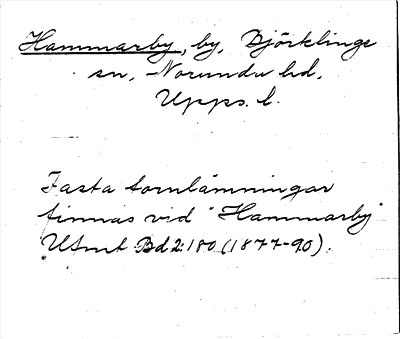 Hammarby, by, Björklinge
sn, Norunda hd,
Upps. l.
Fasta fornlämningar
finnas vid "Hammarby"
Bd 2:180 (1877-90).